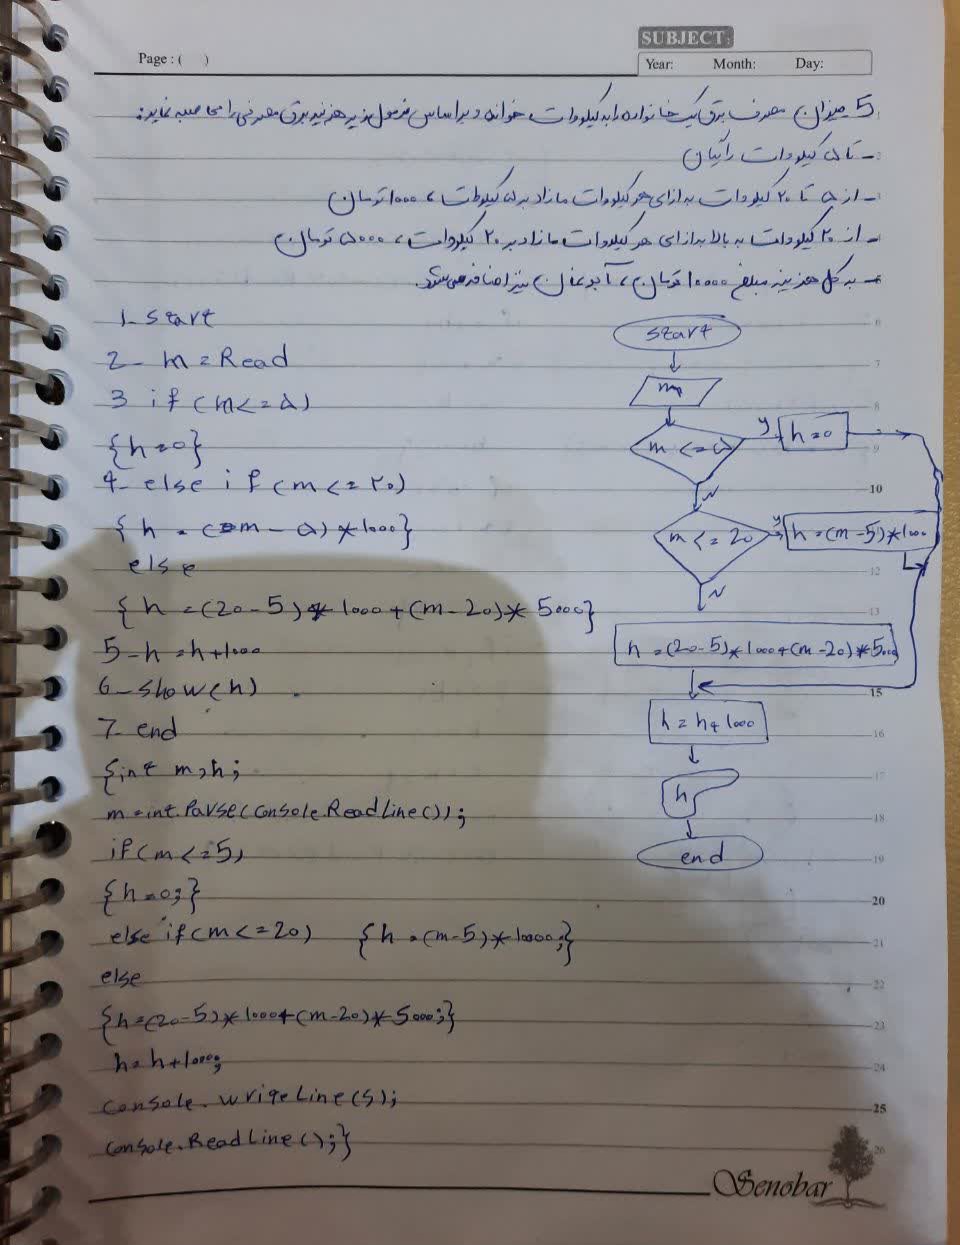 SUBJECT:
Page : ( )
Year: Month: Day:
5_ میزان مصرف برق یک خانواده را به کیلووات خوانده و براساس فرمول زیر هزینه برق مصرفی را محاسبه نمایید:
- تا ۵ کیلووات رایگان
- از ۵ تا ۲۰ کیلووات به ازای هر کیلووات مازاد بر ۵ کیلووات، ۱۰۰۰ تومان
- از ۲۰ کیلووات به بالا به ازای هر کیلووات مازاد بر ۲۰ کیلووات، ۵۰۰۰ تومان
- به کل هزینه مبلغ ۱۰۰۰۰ تومان، آبونمان نیز اضافه می‌شود.
1_ start
2_ m = Read
3 if (m <= ۵)
{h = 0}
4_ else if (m <= ۲۰)
{h = (m - ۵) * 1000}
else
{h = (20-5) * 1000 + (m-20) * 5000}
5_ h = h + 1000
6_ show(h)
7_ end
{int m,h;
m = int.Parse(Console.ReadLine());
if (m <= 5)
{h = 0;}
else if (m <= 20) {h = (m-5) * 1000;}
else
{h = (20-5) * 1000 + (m-20) * 5000;}
h = h + 1000;
Console.writeLine(s);
Console.ReadLine();}
start
m
m <= ۵
y
h = 0
N
m <= 20
y
h = (m-5) * 1000
N
h = (20-5) * 1000 + (m-20) * 5000
h = h + 1000
h
end
6
7
8
9
10
12
13
15
16
17
18
19
20
21
22
23
24
25
26
Senobar